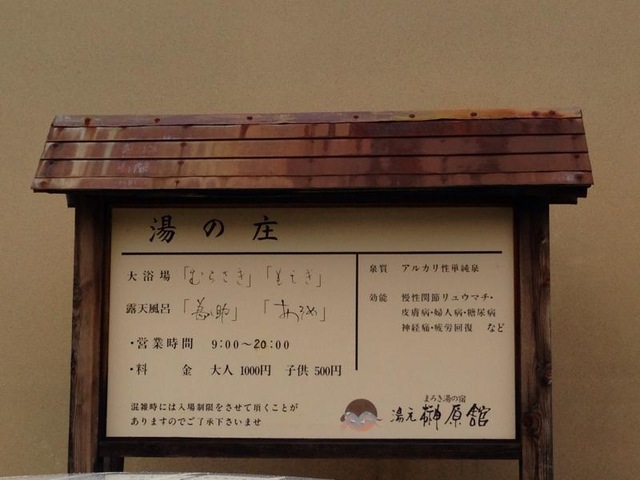 湯の庄
大浴場「むらさき」「もえぎ」
露天風呂「善助」「あうめ」
・営業時間 9:00～20:00
・料金 大人 1000円 子供 500円
混雑時には入場制限をさせて頂くことが
ありますのでご了承下さいませ
泉質 アルカリ性単純泉
効能 慢性関節リュウマチ・
皮膚病・婦人病・糖尿病
神経痛・疲労回復 など
まろき湯の宿
湯元榊原舘